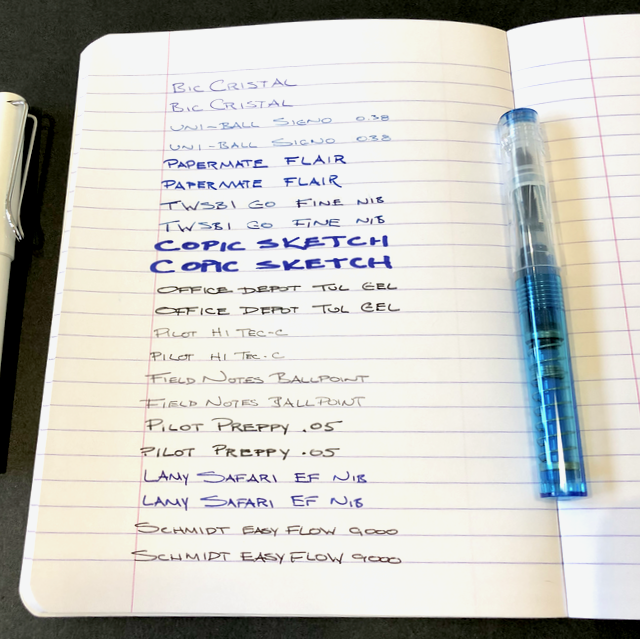 BIC CRISTAL
BIC CRISTAL
UNI-BALL SIGNO 0.38
UNI-BALL SIGNO 038
PAPERMATE FLAIR
PAPERMATE FLAIR
TWSBI GO FINE NIB
TWSBI GO FINE NIB
COPIC SKETCH
COPIC SKETCH
OFFICE DEPOT TUL GEL
OFFICE DEPOT TUL GEL
PILOT HI TEC-C
PILOT HI TEC-C
FIELD NOTES BALLPOINT
FIELD NOTES BALLPOINT
PILOT PREPPY .05
PILOT PREPPY .05
LAMY SAFARI EF NIB
LAMY SAFARI EF NIB
SCHMIDT EASY FLOW 9000
SCHMIDT EASY FLOW 9000